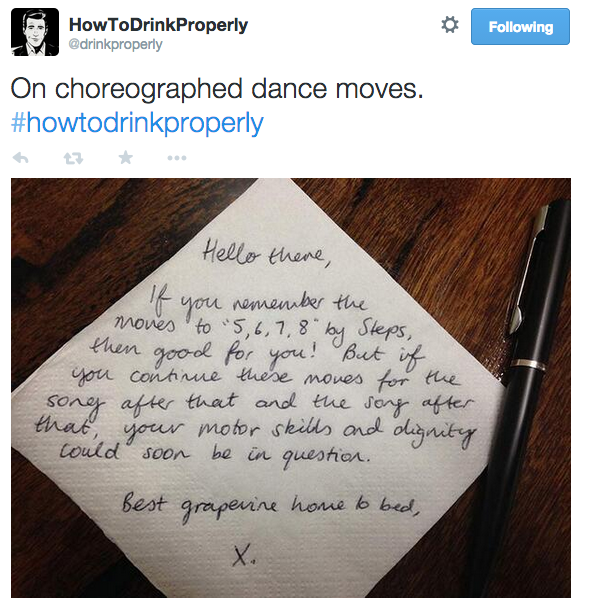 HowToDrinkProperly
@drinkproperly
Following
On choreographed dance moves.
#howtodrinkproperly
Hello there,
If you remember the
moves to "5,6,7,8" by Steps,
then good for you! But if
you continue these moves for the
song after that and the song after
that, your motor skills and dignity
could soon be in question.
Best grapevine home to bed,
X.